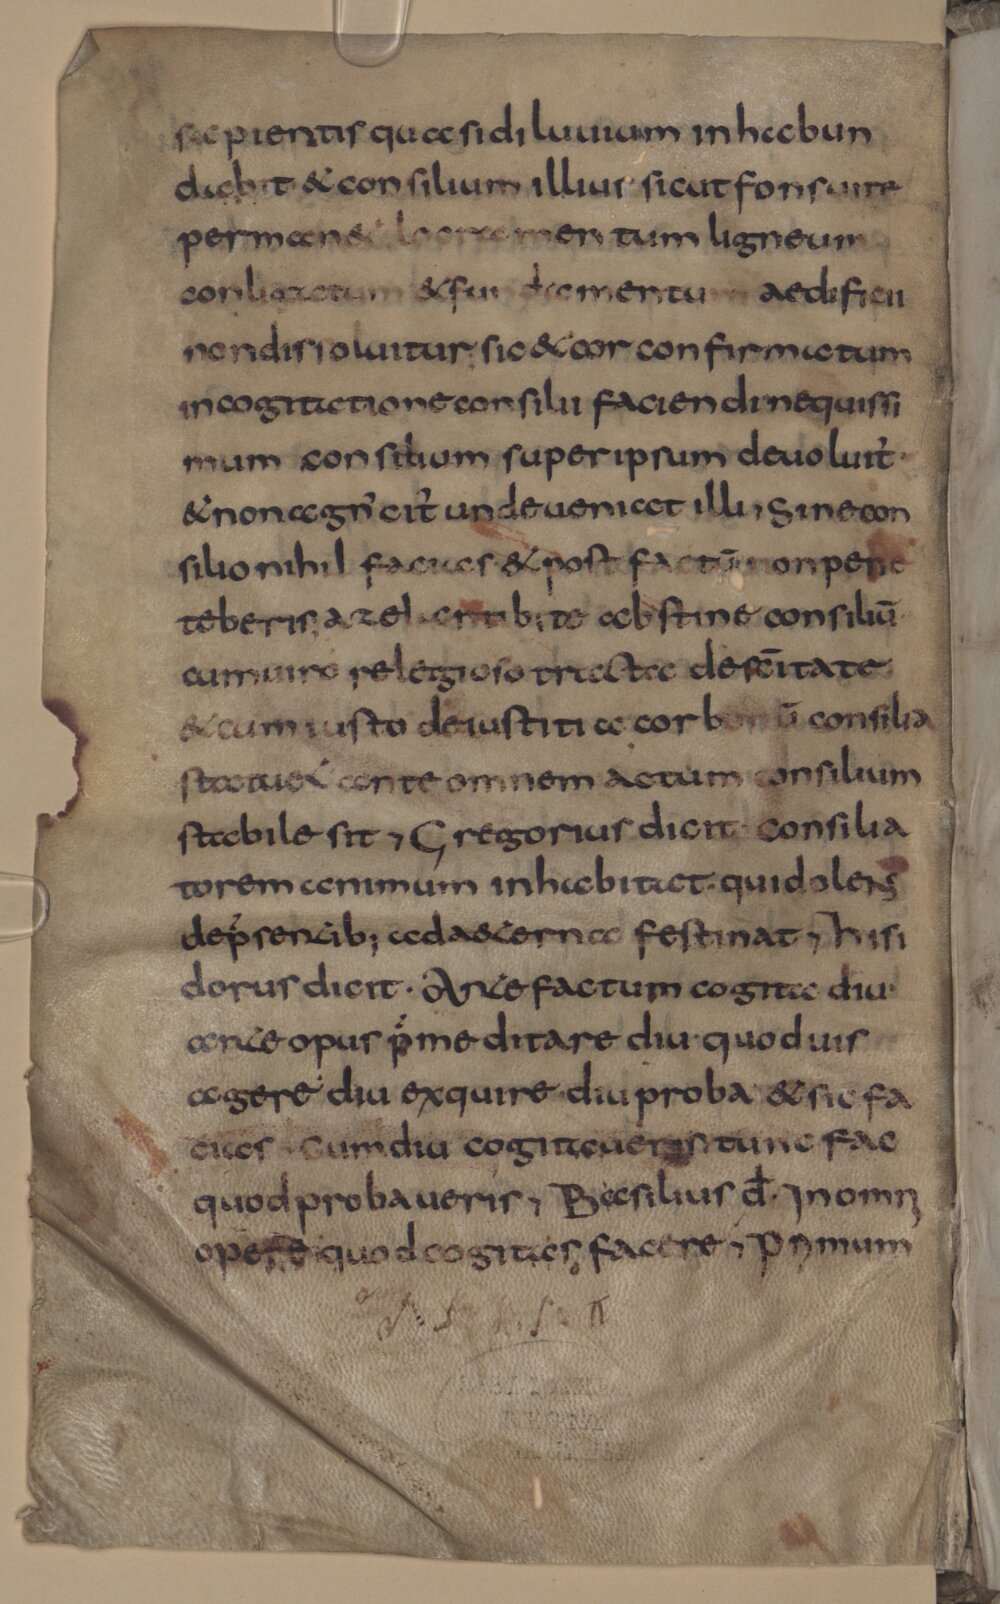 sapientis quasi diluuium inhabun
dabit & consilium illius sicut fons uite
perman& looramentum ligneum
conligatum & fundamentum aedificii
non dissoluitur sic & cor confirmatum
in cogitatione consilii faciendi nequissi
mum consilium super ipsum deuoluit̉
& non agn̉cit̉ unde ueniat illi, Sine con
silio nihil facias & post factū non pene
teberis, a zelantib; te abstine consiliū
cum uiro relegioso tracta de scītate
& cum iusto de iustitia cor bonū consilia
statue& ante omnem actum consilium
stabile sit, Gregorius dicit. Consilia
torem animum inhabitat. qui dolens
de p̉sentib; ad a&erna festinat, hisi
dorus dicit. Ante factum cogita diu
ante opus p̉meditare diu. quod uis
agere diu exquire diu proba & sic fa
cias. Cum diu cogitaueris tunc fac
quod probaueris, Basilius đ. In omn
opere quod cogitas facere, Primum